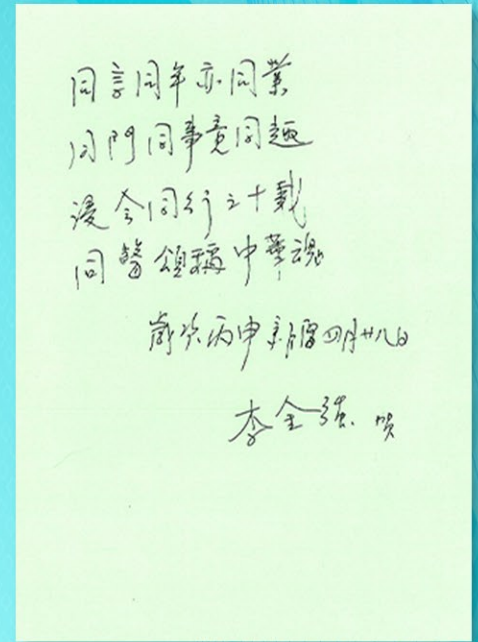 同言同年亦同業
同門同事竟同趣
漫會同行六十載
同聲頌稱中華魂
歲次丙申新曆四月廿八日
李金強 賀